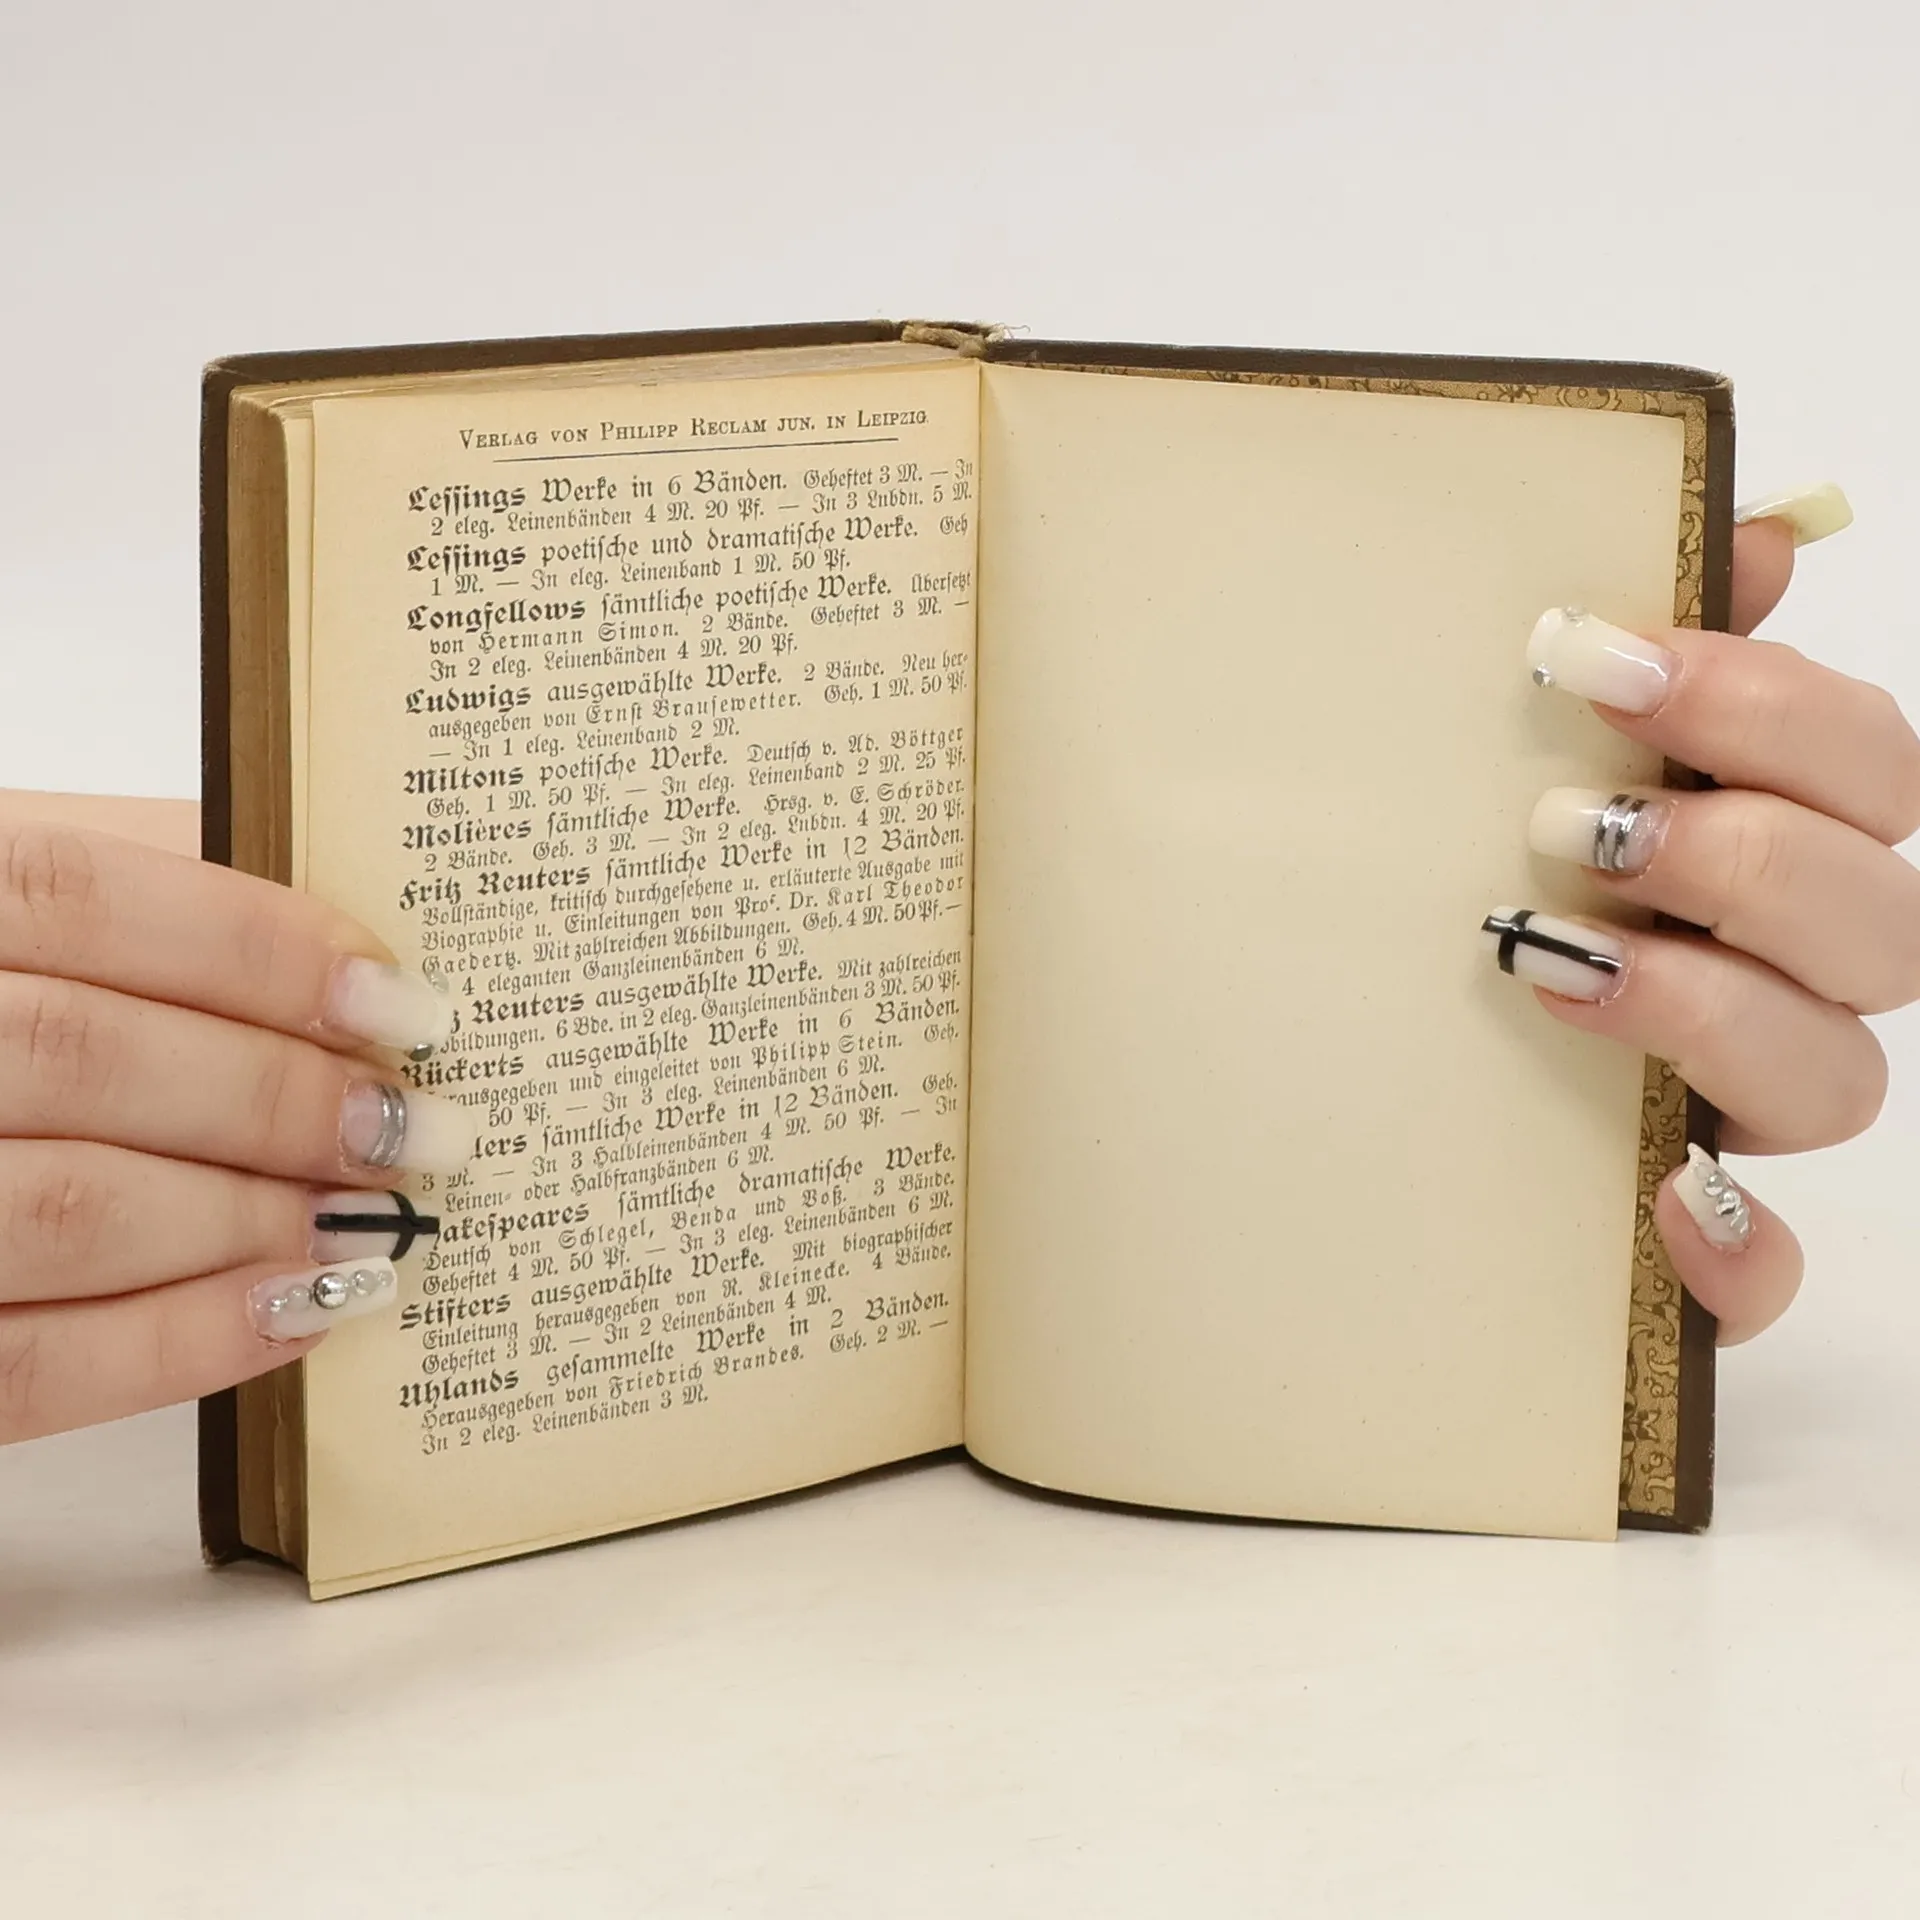 VERLAG VON PHILIPP RECLAM JUN. IN LEIPZIG
Leſſings Werke in 6 Bänden. Geheftet 3 M. — In
2 eleg. Leinenbänden 4 M. 20 Pf. — In 3 Lnbdn. 5 M.
Leſſings poetiſche und dramatiſche Werke. Geh
1 M. — In eleg. Leinenband 1 M. 50 Pf.
Longfellows ſämtliche poetiſche Werke. Überſetzt
von Hermann Simon. 2 Bände. Geheftet 3 M. —
In 2 eleg. Leinenbänden 4 M. 20 Pf.
Ludwigs ausgewählte Werke. 2 Bände. Neu her-
ausgegeben von Ernſt Brauſewetter. Geh. 1 M. 50 Pf.
— In 1 eleg. Leinenband 2 M.
Miltons poetiſche Werke. Deutſch v. Ad. Böttger
Geh. 1 M. 50 Pf. — In eleg. Leinenband 2 M. 25 Pf.
Molières ſämtliche Werke. Hrsg. v. E. Schröder.
2 Bände. Geh. 3 M. — In 2 eleg. Lnbdn. 4 M. 20 Pf.
Fritz Reuters ſämtliche Werke in 12 Bänden.
Vollſtändige, kritiſch durchgeſehene u. erläuterte Ausgabe mit
Biographie u. Einleitungen von Prof. Dr. Karl Theodor
Gaedertz. Mit zahlreichen Abbildungen. Geh. 4 M. 50 Pf. —
4 eleganten Ganzleinenbänden 6 M.
z Reuters ausgewählte Werke. Mit zahlreichen
bbildungen. 6 Bde. in 2 eleg. Ganzleinenbänden 3 M. 50 Pf.
Rückerts ausgewählte Werke in 6 Bänden.
rausgegeben und eingeleitet von Philipp Stein. Geh.
50 Pf. — In 3 eleg. Leinenbänden 6 M.
lers ſämtliche Werke in 12 Bänden. Geh.
3 M. — In 3 Halbleinenbänden 4 M. 50 Pf. — In
Leinen- oder Halbfranzbänden 6 M.
akeſpeares ſämtliche dramatiſche Werke.
Deutſch von Schlegel, Benda und Voß. 3 Bände.
Geheftet 4 M. 50 Pf. — In 3 eleg. Leinenbänden 6 M.
Stifters ausgewählte Werke. Mit biographiſcher
Einleitung herausgegeben von R. Kleinecke. 4 Bände.
Geheftet 3 M. — In 2 Leinenbänden 4 M.
Uhlands geſammelte Werke in 2 Bänden.
Herausgegeben von Friedrich Brandes. Geh. 2 M. —
In 2 eleg. Leinenbänden 3 M.